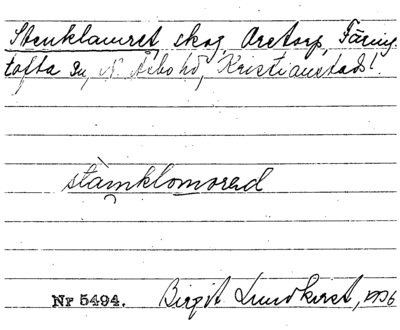 Stenklamret, skog, Oretorp, Färing-
tofta sn, N. Åsbo hd, Kristianstads l.
stàmklomorəd
Nr 5494. Birgit Lundkvist, 1936